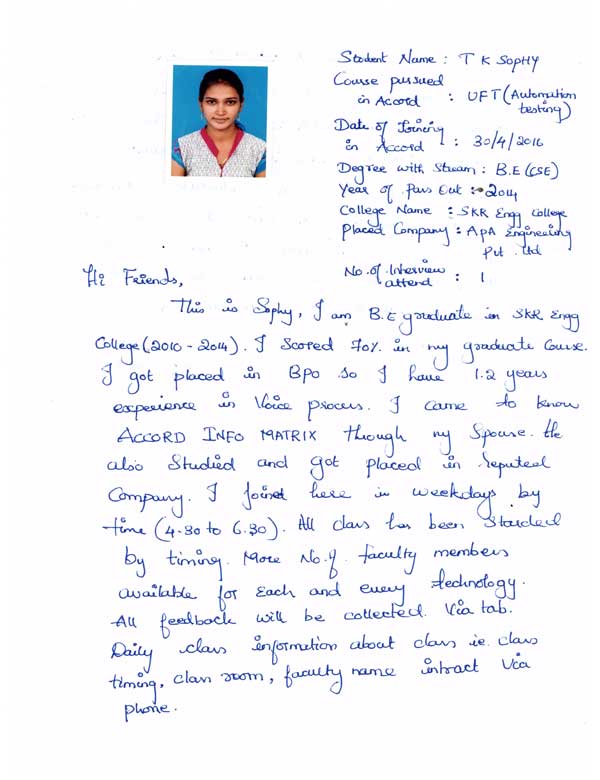 Student Name : T K SOPHY
Course pursued
in Accord : UFT (Automation
testing)
Date of Joining
in Accord : 30/4/2016
Degree with Stream : B.E (CSE)
Year of Pass Out :- 2014
College Name : SKR Engg College
Placed Company : APA Engineering
Pvt. Ltd
No. of. Interview
attend : 1
Hi Friends,
This is Sophy, I am B.E graduate in SKR Engg
College (2010 - 2014). I Scored 70%. in my graduate Course.
I got placed in BPO so I have 1.2 years
experience in Voice process. I came to know
ACCORD INFO MATRIX through my Spouse. He
also Studied and got placed in reputed
Company. I joined here in weekdays by
time (4.30 to 6.30). All class has been Started
by timing. More No.of. faculty members
available for Each and every technology.
All feedback will be collected. Via tab.
Daily class information about class ie. class
timing, class room, faculty name intract Via
phone.